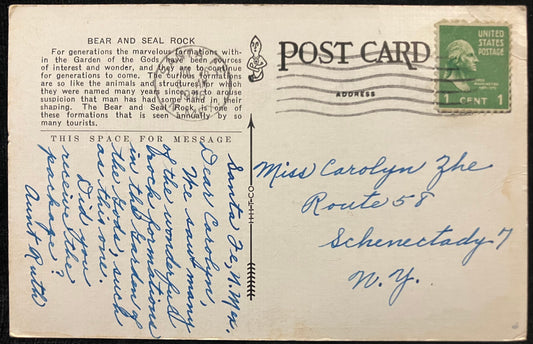 BEAR AND SEAL ROCK
For generations the marvelous formations with-
in the Garden of the Gods have been sources
of interest and wonder, and they are to continue
for generations to come. The curious formations
are so like the animals and structures for which
they were named many years since, as to arouse
suspicion that man has had some hand in their
shaping. The Bear and Seal Rock is one of
these formations that is seen annually by so
many tourists.
THIS SPACE FOR MESSAGE
Santa Fe, N. Mex.
Dear Carolyn,
We saw many
of the wonderful
rock formations
in the Garden of
the Gods, such
as this one.
Did you
receive the
package?
Aunt Ruth
POST CARD
ADDRESS
UNITED
STATES
POSTAGE
1 CENT 1
Miss Carolyn Zhe
Route 58
Schenectady 7
N. Y.